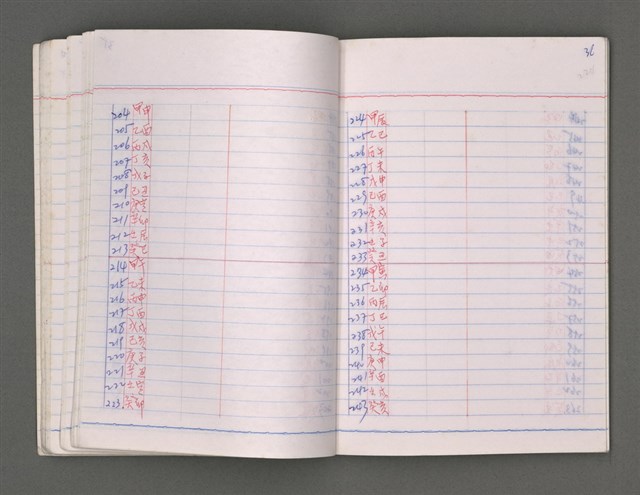 204 甲申
205 乙酉
206 丙戌
207 丁亥
208 戊子
209 己丑
210 庚寅
211 辛卯
212 壬辰
213 癸巳
214 甲午
215 乙未
216 丙申
217 丁酉
218 戊戌
219 己亥
220 庚子
221 辛丑
222 壬寅
223 癸卯
36
224 甲辰
225 乙巳
226 丙午
227 丁未
228 戊申
229 己酉
230 庚戌
231 辛亥
232 壬子
233 癸丑
234 甲寅
235 乙卯
236 丙辰
237 丁巳
238 戊午
239 己未
240 庚申
241 辛酉
242 壬戌
243 癸亥